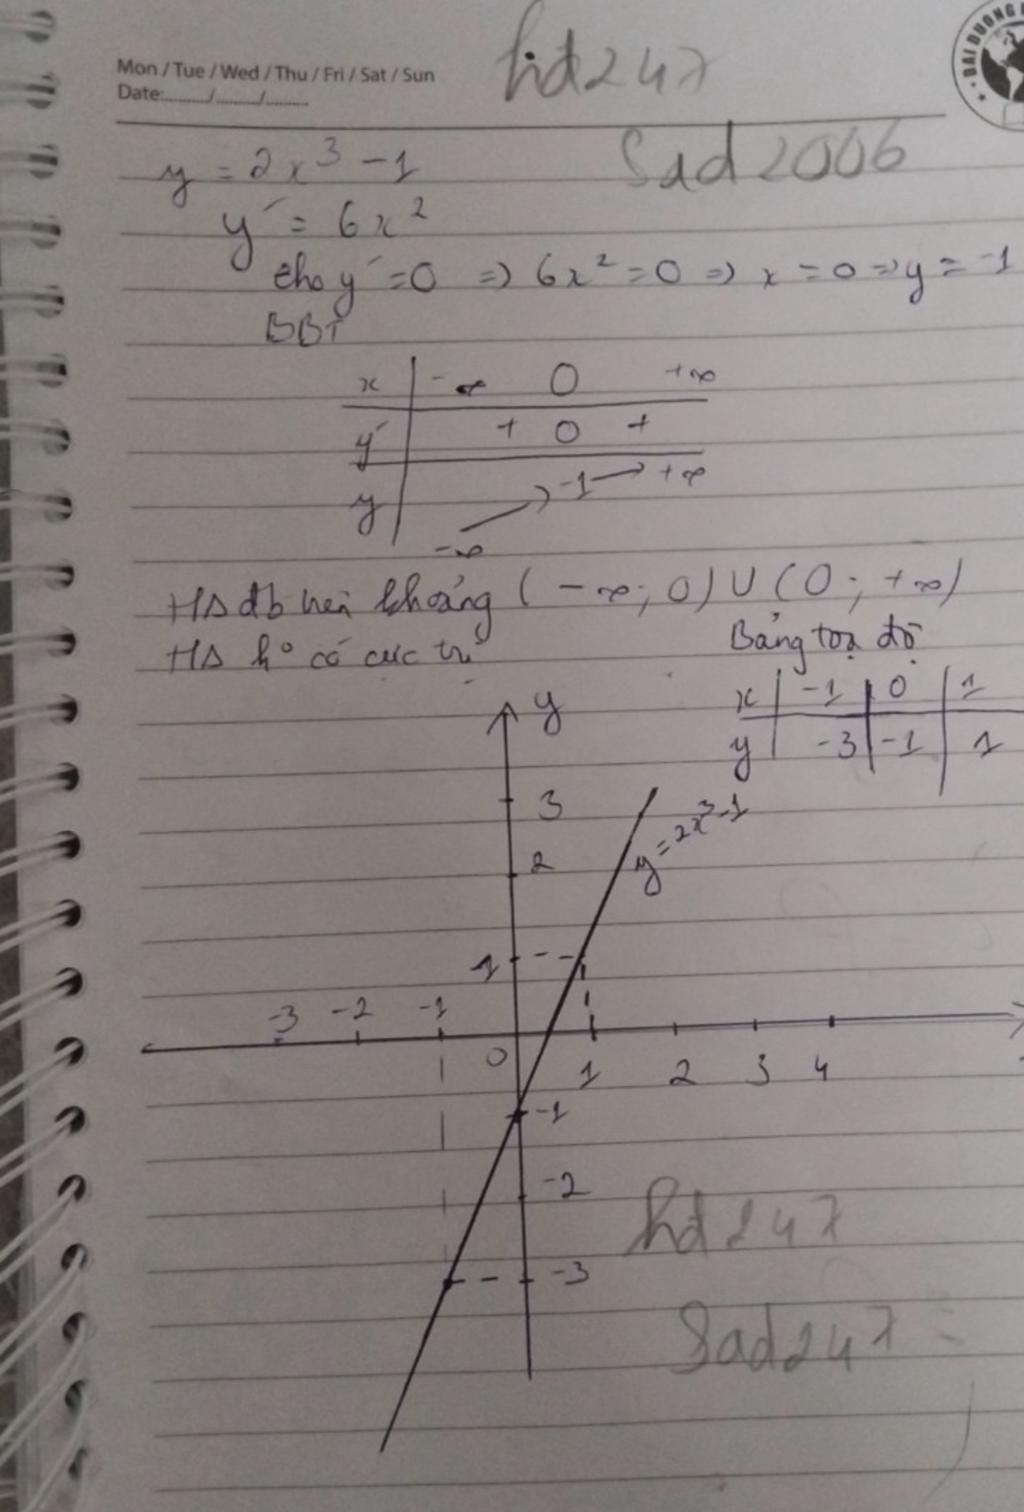 Mon / Tue / Wed / Thu / Fri / Sat / Sun
Date:......../......../.........
hd247
ĐẠI DƯƠNG
Sad2006
y = 2x³ - 1
y' = 6x²
cho y' = 0 => 6x² = 0 => x = 0 => y = -1
BBT
x -∞ 0 +∞
y' + 0 +
y -∞ -1 +∞
HS đb trên khoảng (-∞; 0) U (0; +∞)
HS ko có cực trị
Bảng toạ độ
x -1 0 1
y -3 -1 1
y
3
y = 2x³ - 1
2
1
-3 -2 -1
0 1 2 3 4
-1
-2
hd247
-3
Sad247